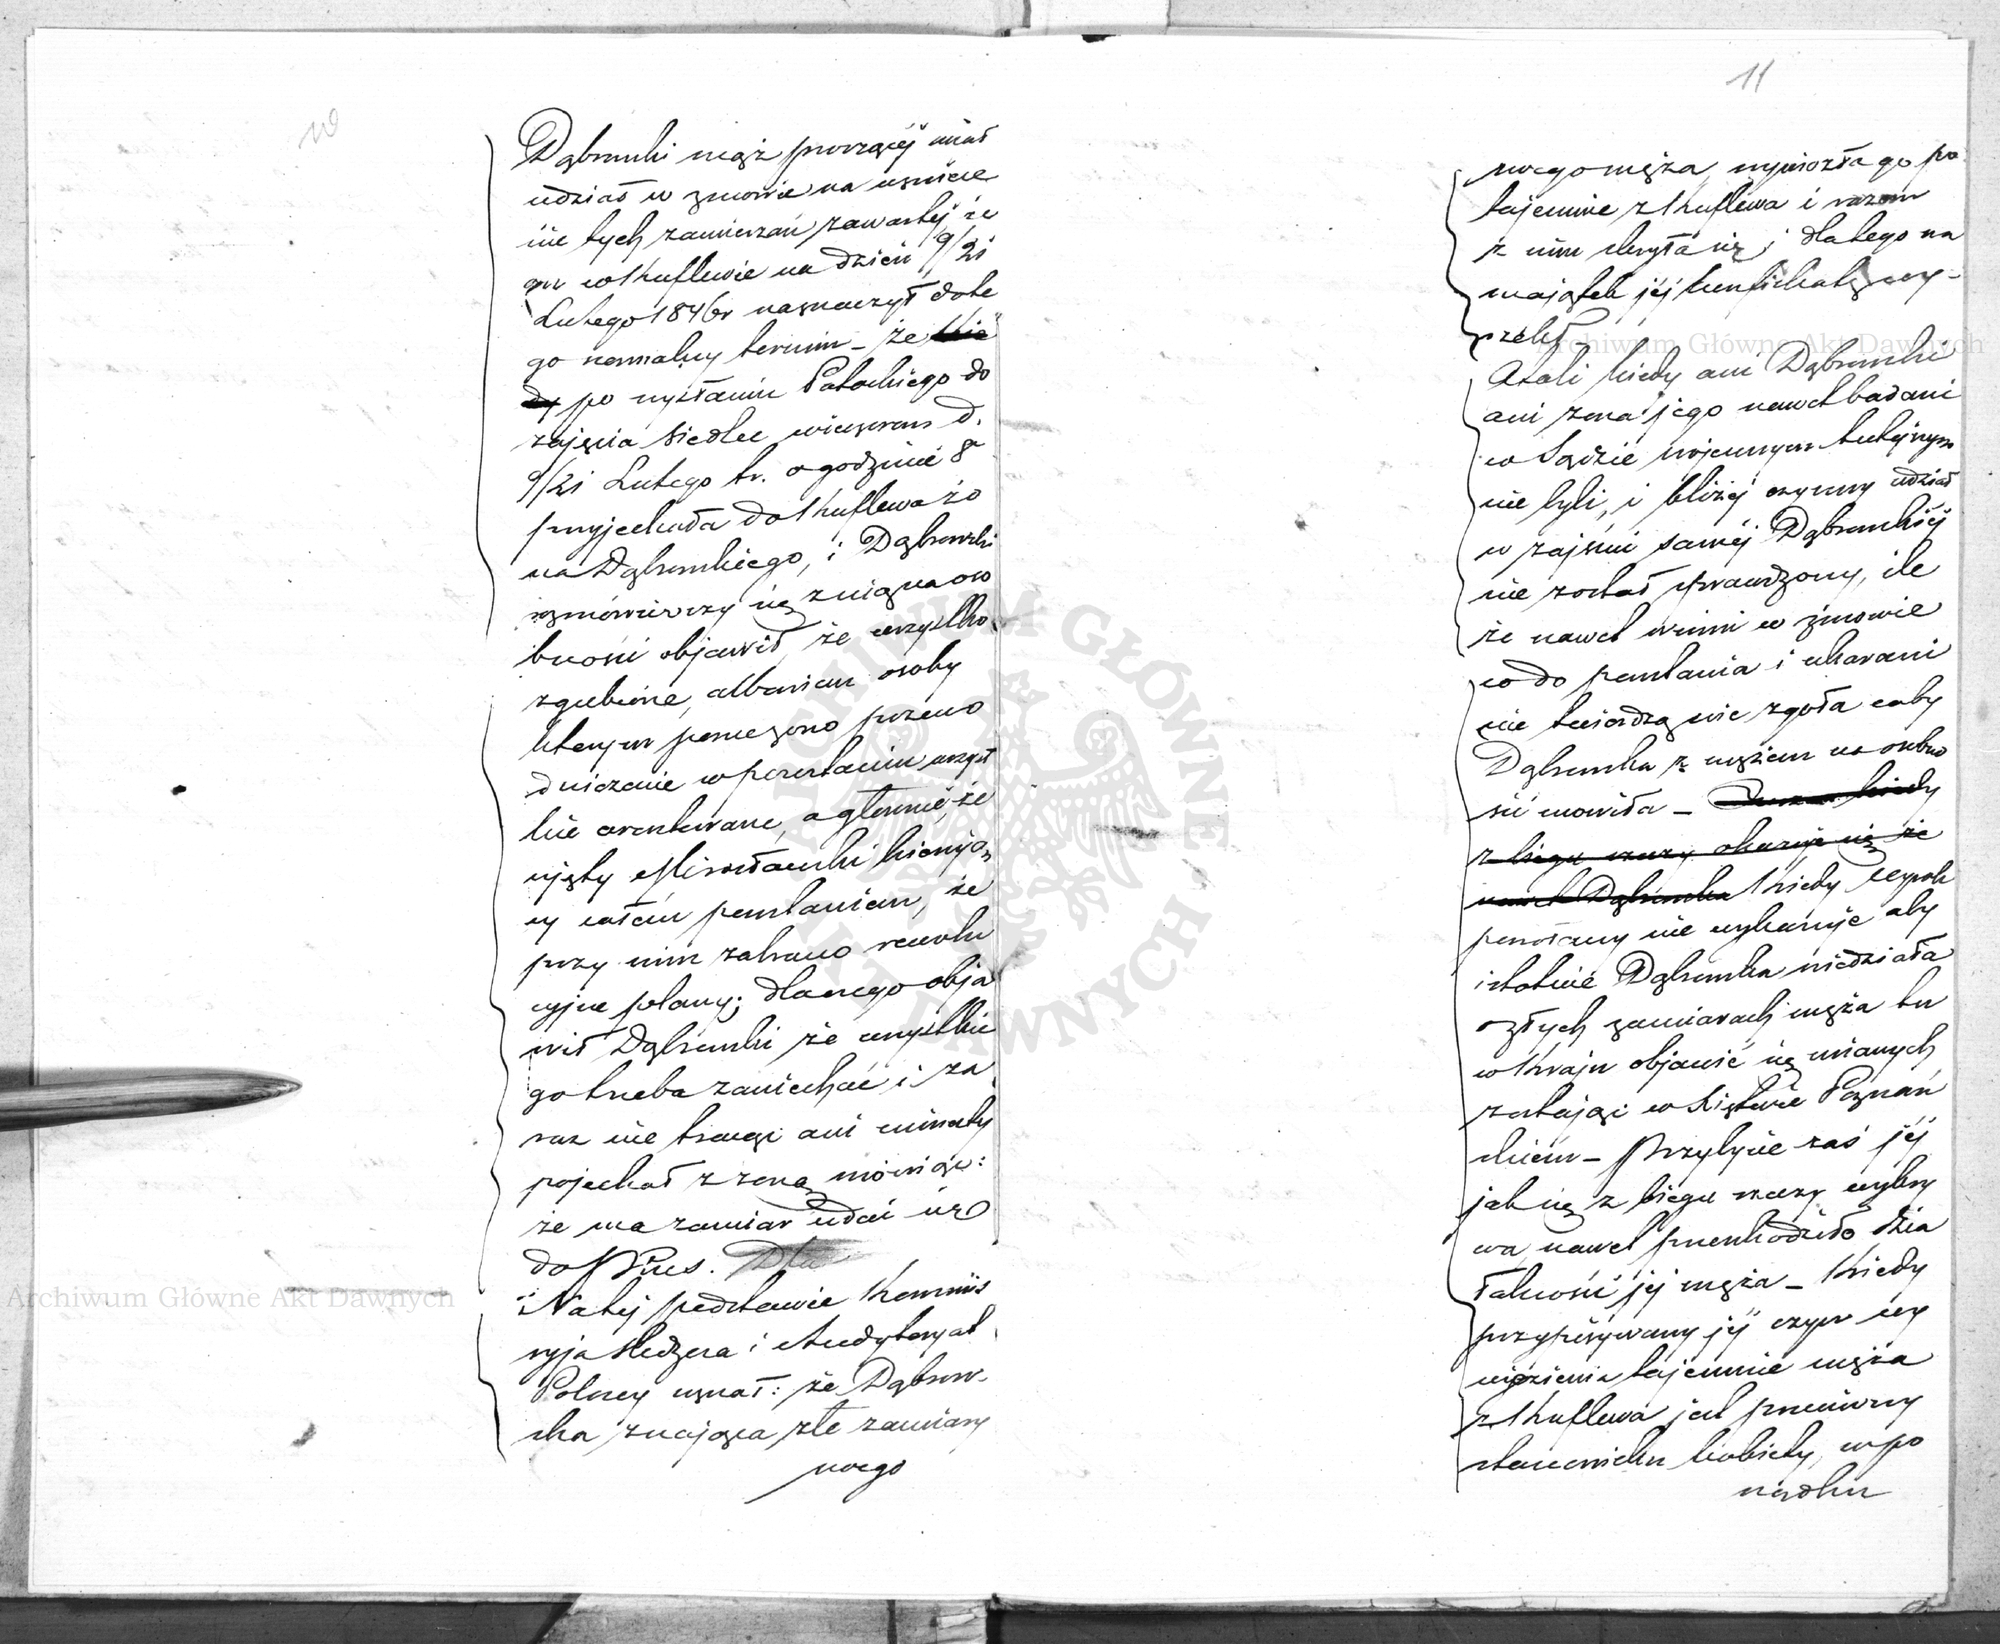 Dąbrowski mąż proszącej miał
udział w zmowie na uzniece
nie tych zamierzań zawartej, że
on w Kuflewie na dzień 9/21
Lutego 1846r naznaczył dote
go normalny termin – że kie
dy po wysłaniu Potockiego do
zajęcia Siedlec wieczorem d.
9/21 Lutego t.r. o godzinie 8
przyjechała do Kuflewa żo
na Dąbrowskiego, i Dąbrowski
rozmówiwszy się z nią na oso
bności objawił, że wszystko
zgubione, albowiem osoby
którym poruczono przewo
dniczenie w powstaniu wszyst
kie aresztowane, a głównie, że
ujęty Mirosławski kierują
cy całém powstaniem, że
przy nim zabrano rewolu
cyjne plany; dlaczego obja
wił Dąbrowski że wszystkie
go trzeba zaniechać i za
raz nie tracąc ani minuty
pojechał z żoną mówiąc:
że ma zamiar udać się
do Prus. Dla
Na tej podstawie Kommis
syja Śledcza i Audytoryat
Polowy uznał: że Dąbrow-
ska znająca złe zamiary
swego
11
swego męża, wywiozła go po
tajemnie z Kuflewa i razem
z nim skryła się; dlatego na
majątek jej konfiskatę wy-
rzekł
Atoli kiedy ani Dąbrowski
ani żona jego nawet badani
w Sądzie wojennym tutejszym
nie byli, i bliżej czynny udział
w zajściu samej Dąbrowskiej
nie został sprawdzony, ile
że nawet winni w zmowie
co do powstania i ukarani
nie twierdzą nic zgoła coby
Dąbrowska z mężem na osobno
ści mówiła – kiedy
z biegu rzeczy okazuje się że
nawet Dąbrowska Kiedy wyrok
powołany nie wykazuje aby
istotnie Dąbrowska wiedziała
o złych zamiarach męża tu
w Kraju objawić się mianych
zostając w Księstwie Poznań
skiém – Przybycie zaś jej
jak się z biegu rzeczy wykry
wa, nawet przeszkodziło dzia
łalności jej męża – Kiedy
przypisywany jej czyn wy
wiezienia tajemnie męża
z Kuflewa jest przeciwny
stanowisku kobiety, w po
rządku